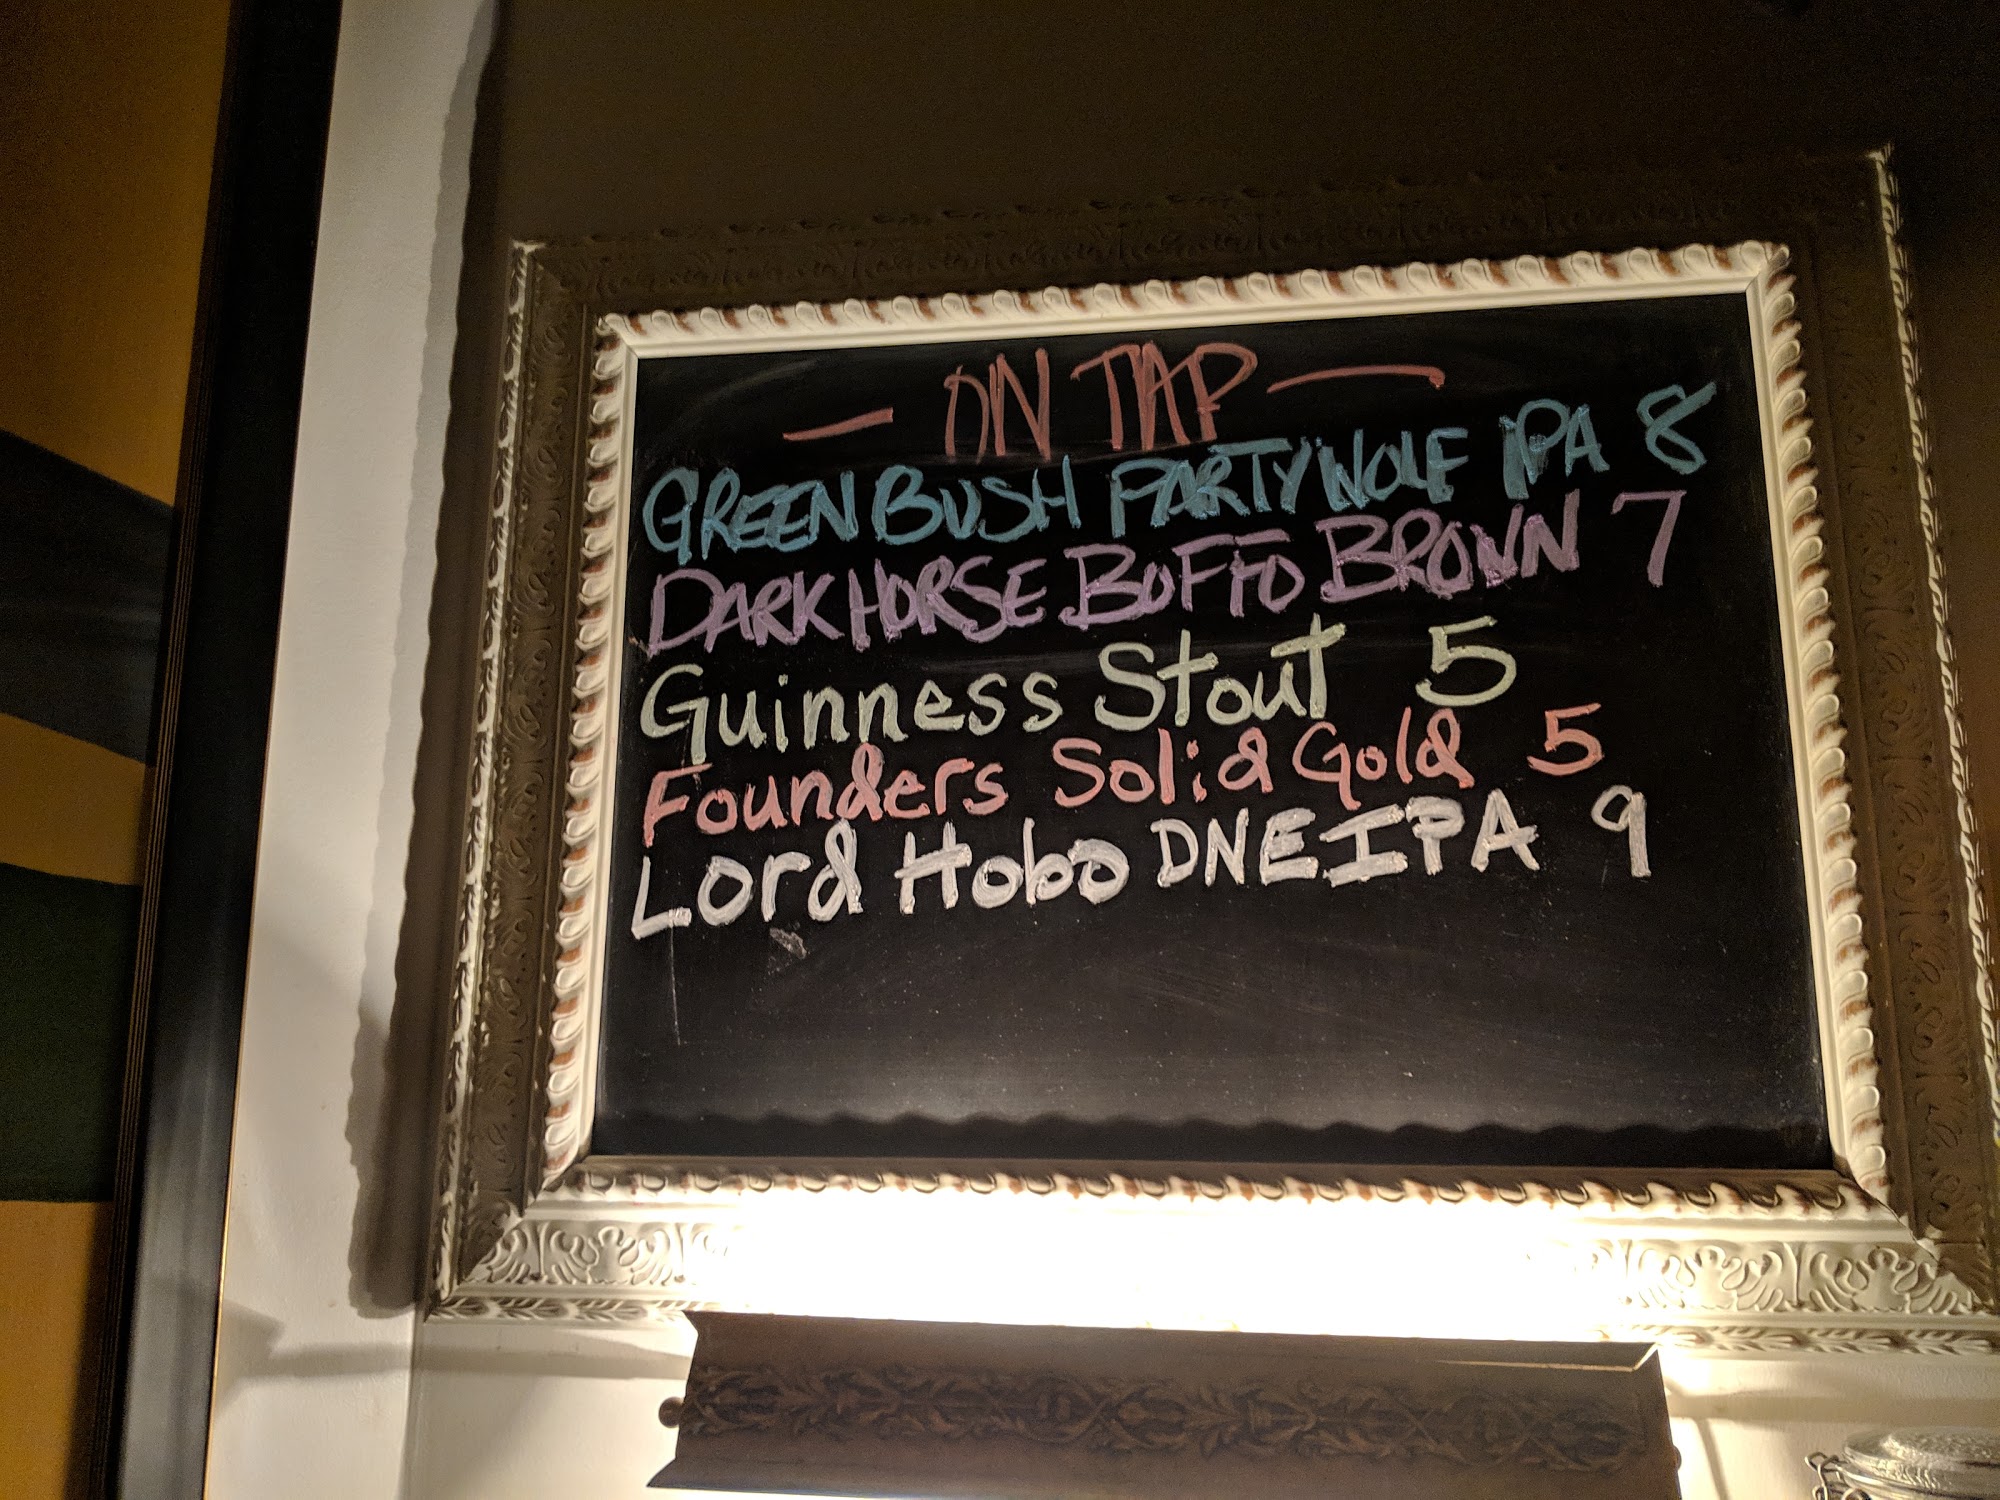 — ON TAP —
GREENBUSH PARTY WOLF IPA 8
DARK HORSE BOFFO BROWN 7
Guinness Stout 5
Founders Solid Gold 5
Lord Hobo DNEIPA 9